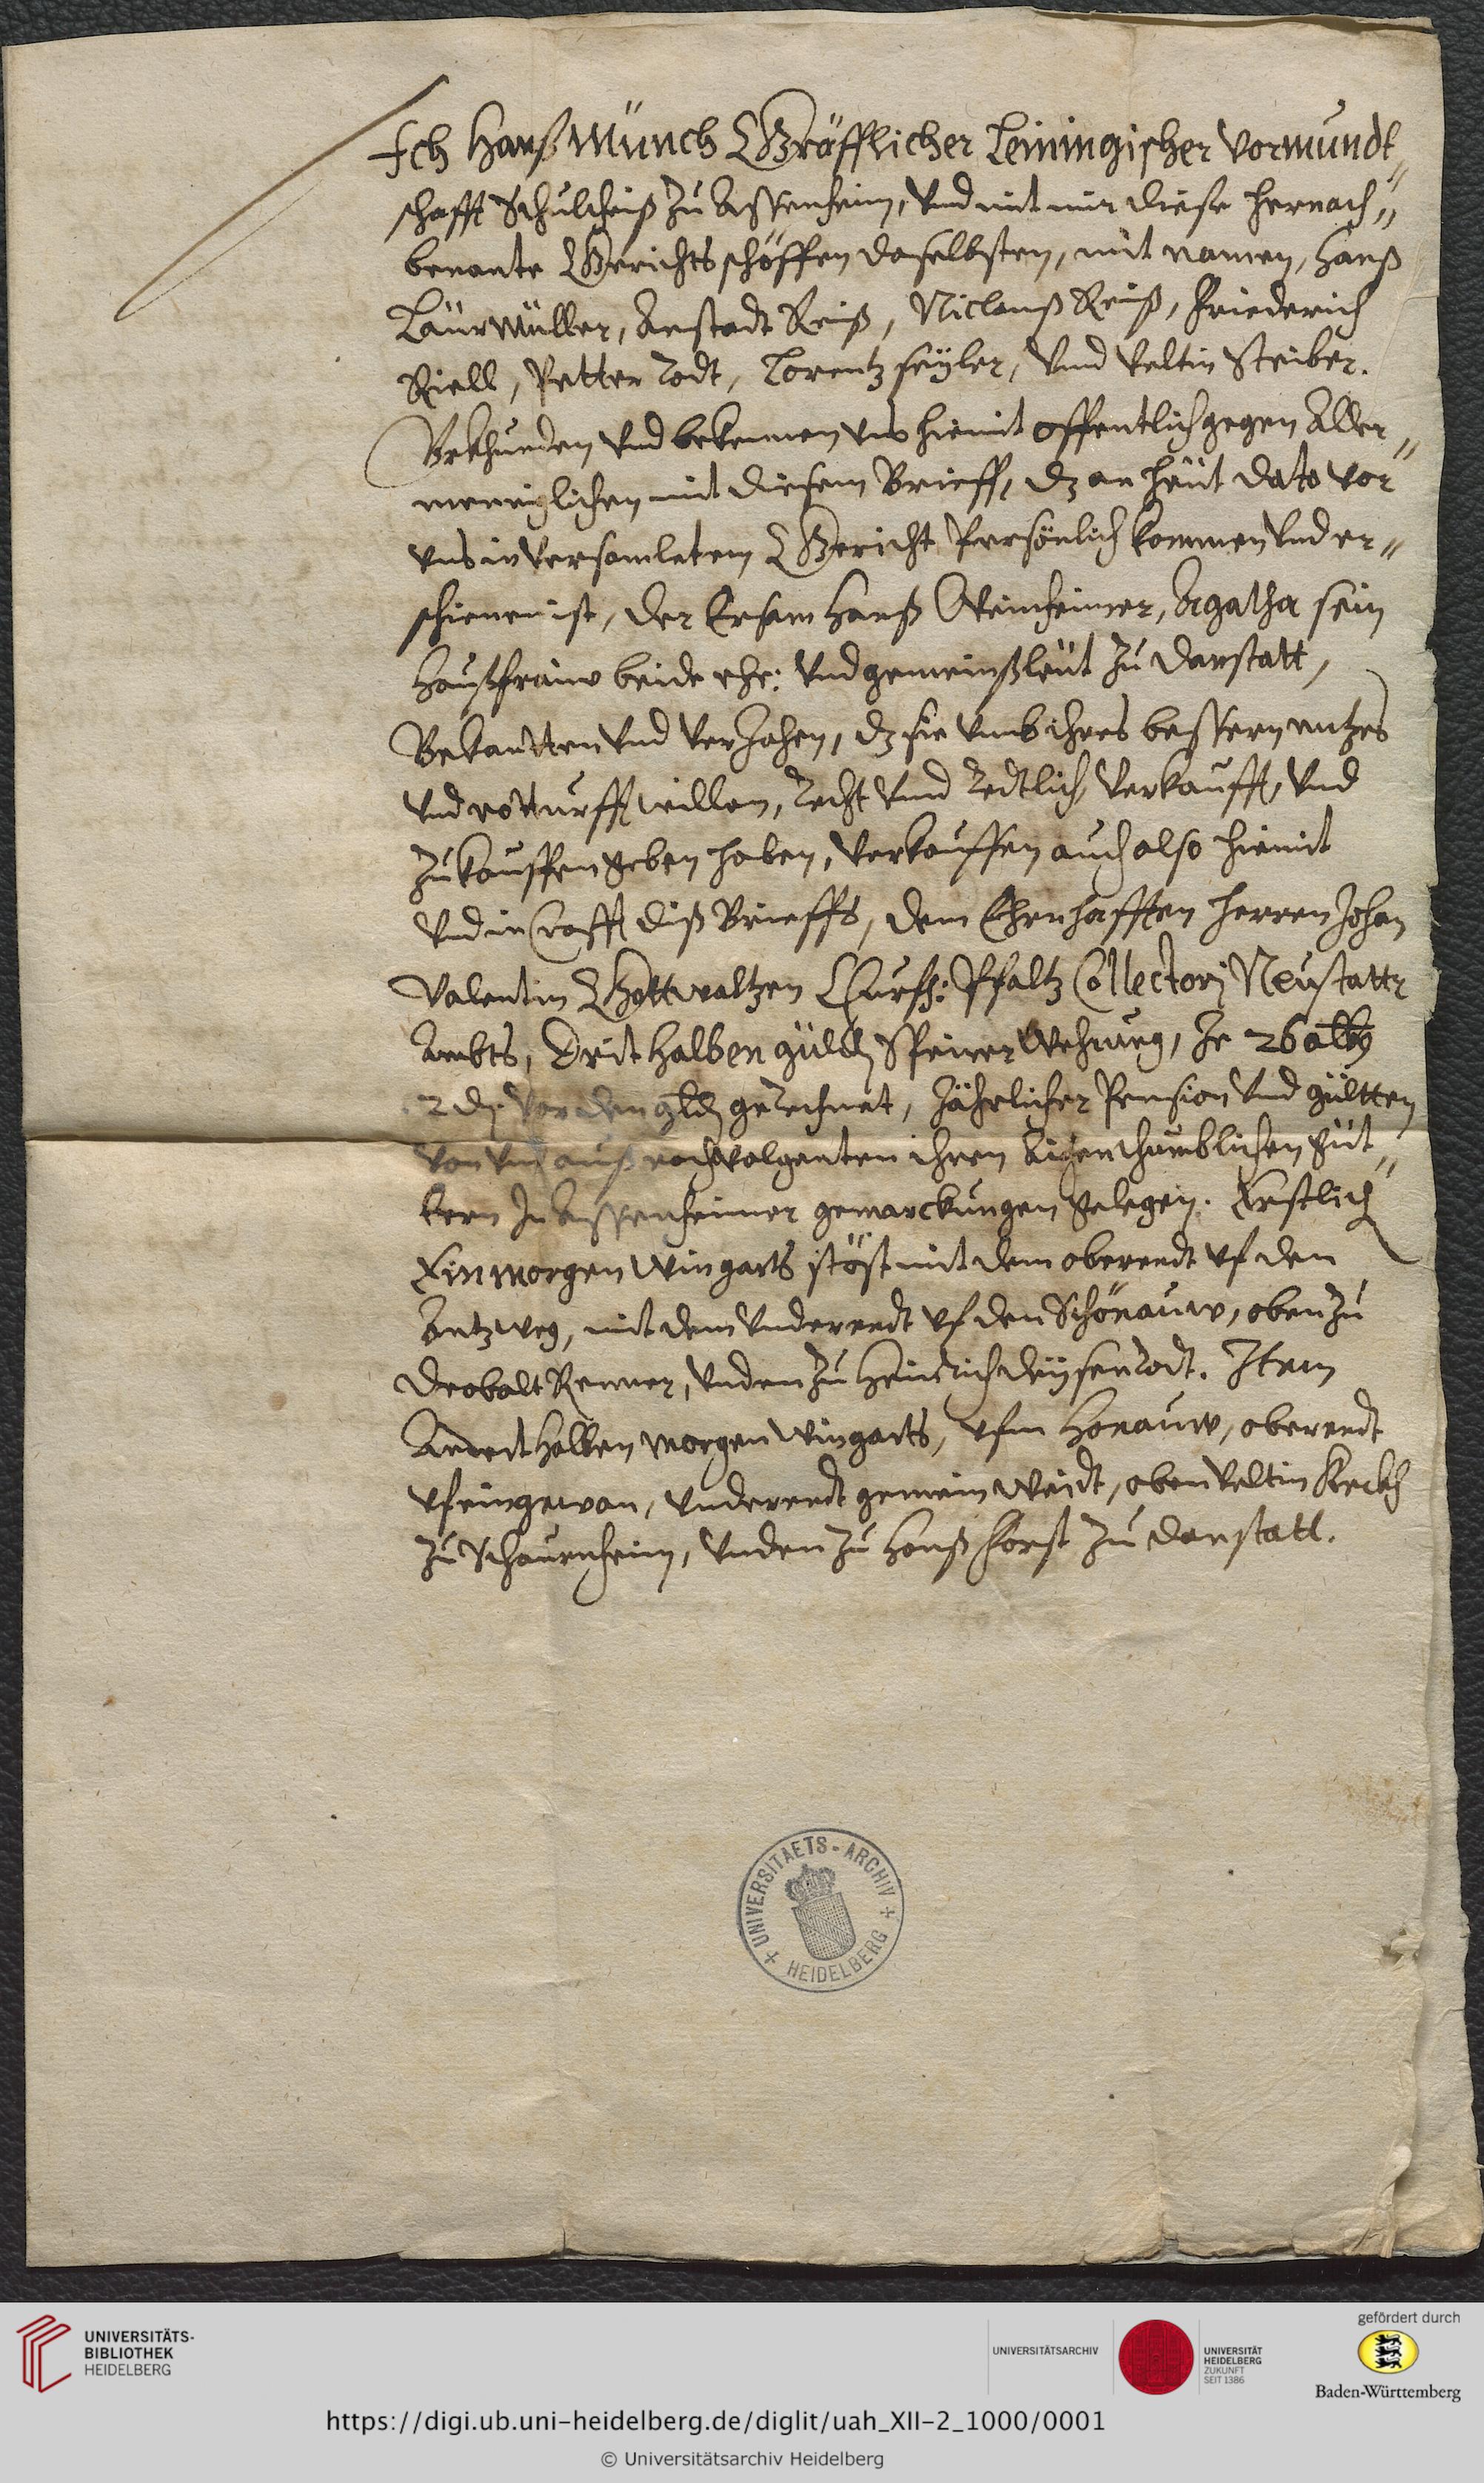 Ich Hanß Münch Gräfflicher Leiningischer Vormundt„
schafft Schultheiß zu Assenheim, vnd mit mir diese hernach„
benante Gerichts schöffen daselbsten, mit namen, Hanß
Laurmüller, Anstadt Reiß, Niclauß Reiß, Friederich
Riell, Petter Todt, Lorentz seyler, vnd Veltin Steiber.
Vrkhunden vnd bekennen vns hiemit offentlich gegen Aller„
meniglichen mit diesem Brieff, dz an heüt dato vor
vns in versamletem Gericht Persönlich kommen vnd er„
schienen ist, der Ersam Hanß Weinheimer, Agatha sein
Haußfrauw beide ehe: vnd gemeinßleüt zu Danstatt,
Bekantten vnd verJahen, dz sie vmb ihres bessern nutzes
vnd notturfft willen, Recht vnd Redtlich verkaufft, vnd
zukauffen geben haben, verkauffen auch also hiemit
vnd in Crafft diß Brieffs, dem Ehrnhafften herren Johan
Valentin Gottwaltzen Churfh: Pfaltz Collectorj Neustatter
Ambts, Drithalben güldn Speirer Wehrung, Je 26 alb9
2 d. vor den gldn gerechnet, Jährlicher Pension vnd gültten
von vnd auß nachvolgenten ihren Aigenthumblichen güt„
tern In Assenheimer gemarckungen gelegen. Erstlich
Ein morgen Wingarts stöst mit dem oberendt vf den
Antzweg, mit dem vnderendt vf den Schönauw, oben zu
Deobalt Renner, vnden zu Heinrich Deysenrodt. Item
Anderthalben morgen Wingarts, vfm Honauw, oberendt
vf ein gewan, vnderendt gemein Weidt, oben Veltin
zu Schauernheim, vnden zu Hanß Forst zu Danstatt.
UNIVERSITAETS-ARCHIV
HEIDELBERG
UNIVERSITÄTS-
BIBLIOTHEK
HEIDELBERG
UNIVERSITÄTSARCHIV
UNIVERSITÄT
HEIDELBERG
ZUKUNFT
SEIT 1386
gefördert durch
Baden-Württemberg
https://digi.ub.uni-heidelberg.de/diglit/uah_XII-2_1000/0001
© Universitätsarchiv Heidelberg